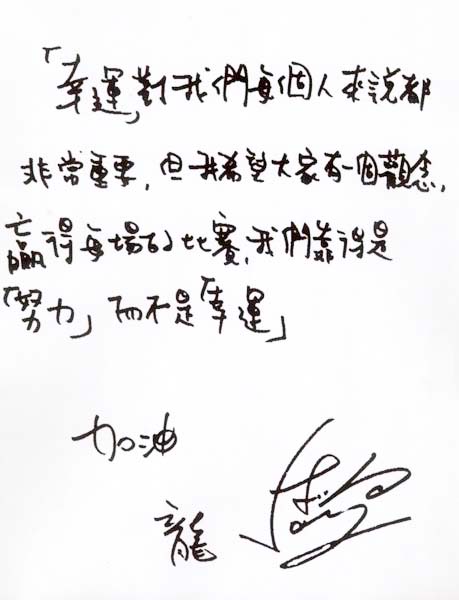 「幸運」對我們每個人來說都
非常重要，但我希望大家有一個觀念，
贏得每場的比賽，我們靠得是
「努力」而不是「幸運」
加油
龍